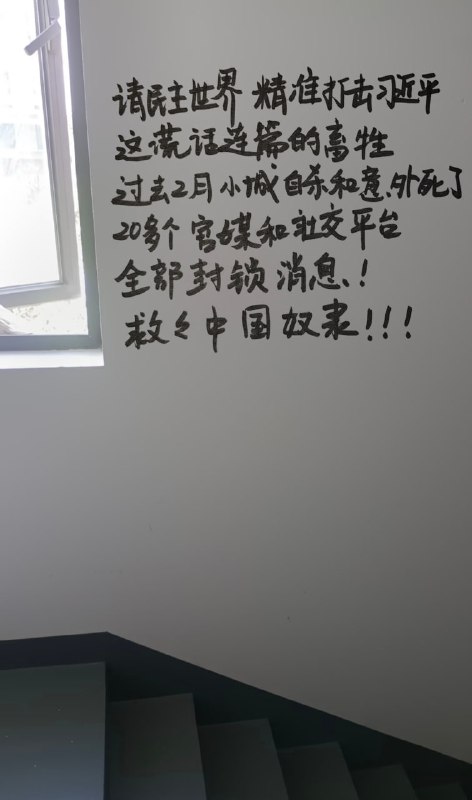 请民主世界 精准打击习近平
这谎话连篇的畜牲
过去2月小城自杀和意外死了
20多个官媒和社交平台
全部封锁消息！
救々中国奴隶!!!